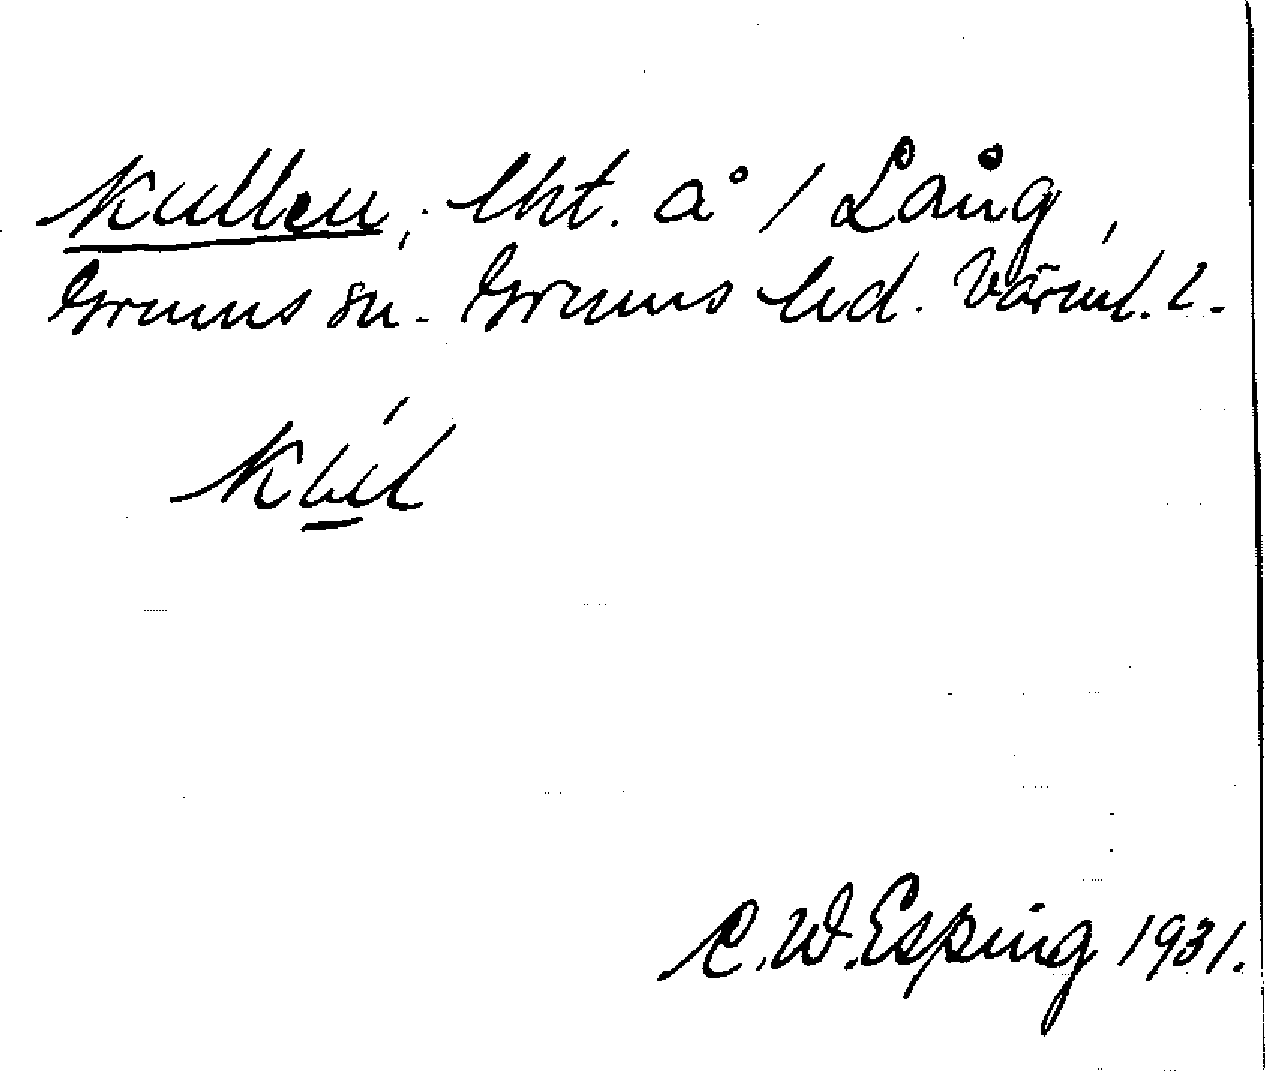 Kullen, lht. å 1 Lång,
Grums sn. Grums hd. Värml. l.
C. W. Esping 1931.